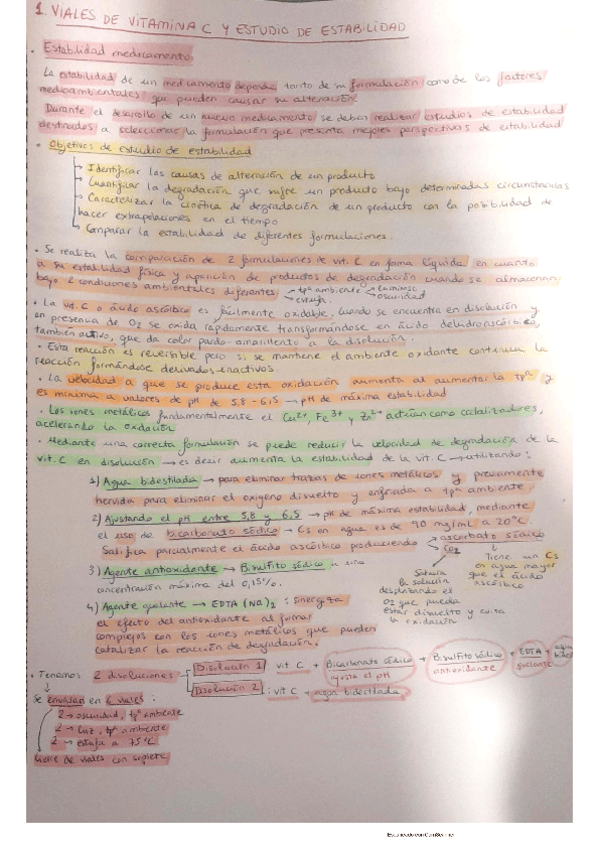 1. VIALES DE VITAMINA C Y ESTUDIO DE ESTABILIDAD
• Estabilidad medicamento:
La estabilidad de un medicamento depende tanto de su formulación como de los factores
medioambientales que pueden causar su alteración
Durante el desarrollo de un nuevo medicamento se deben realizar estudios de estabilidad
destinados a seleccionar la formulación que presenta mejores perspectivas de estabilidad
• Objetivos de estudio de estabilidad
Identificar las causas de alteración de un producto
Cuantificar la degradación que sufre un producto bajo determinadas circunstancias
Caracterizar la cinética de degradación de un producto con la posibilidad de
hacer extrapolaciones en el tiempo
Comparar la estabilidad de diferentes formulaciones.
• Se realiza la comparación de 2 formulaciones de vit. C en forma líquida en cuanto
a su estabilidad física y aparición de productos de degradación cuando se almacenan
bajo 2 condiciones ambientales diferentes: → tpª ambiente → luminoso
→ estufa. → oscuridad
• La vit. C o ácido ascórbico es fácilmente oxidable, cuando se encuentra en disolución y
en presencia de O2 se oxida rápidamente transformándose en ácido dehidroascórbico,
también activo, que da color pardo-amarillento a la disolución.
• Esta reacción es reversible pero si se mantiene el ambiente oxidante continua la
reacción formándose derivados inactivos.
• La velocidad a que se produce esta oxidación aumenta al aumentar la tpª y
es mínima a valores de pH de 5,8 - 6,5 → pH de máxima estabilidad
• Los iones metálicos fundamentalmente el Cu2+, Fe3+ y Zn2+ actúan como catalizadores,
acelerando la oxidación
• Mediante una correcta formulación se puede reducir la velocidad de degradación de la
vit. C en disolución → es decir aumenta la estabilidad de la vit. C → utilizando:
1) Agua bidestilada → para eliminar trazas de iones metálicos y previamente
hervida para eliminar el oxígeno disuelto y enfriada a tpª ambiente
2) Ajustando el pH entre 5,8 y 6,5 → pH de máxima estabilidad, mediante
el uso de bicarbonato sódico → Cs en agua es de 90 mg/mL a 20ºC.
Salifica parcialmente el ácido ascórbico produciendo → ascorbato sódico
→ CO2
Tiene un Cs
en agua mayor
que el ácido
ascórbico
Satura
la solución
desplazando el
O2 que pueda
estar disuelto y evita
la oxidación
3) Agente antioxidante → Bisulfito sódico a una
concentración máxima del 0,15%.
4) Agente quelante → EDTA (Na)2 : sinergiza
el efecto del antioxidante al formar
complejos con los iones metálicos que pueden
catalizar la reacción de degradación.
• Tenemos 2 disoluciones
Disolución 1 : vit C + Bicarbonato sódico + Bisulfito sódico + EDTA +
ajusta el pH antioxidante quelante
Disolución 2 : vit C + agua bidestilada
Se envasan en 6 viales :
2 → oscuridad, tpª ambiente
2 → Luz, tpª ambiente
2 → estufa a 75ºC
Cierre de viales con
Escaneado con CamScanner